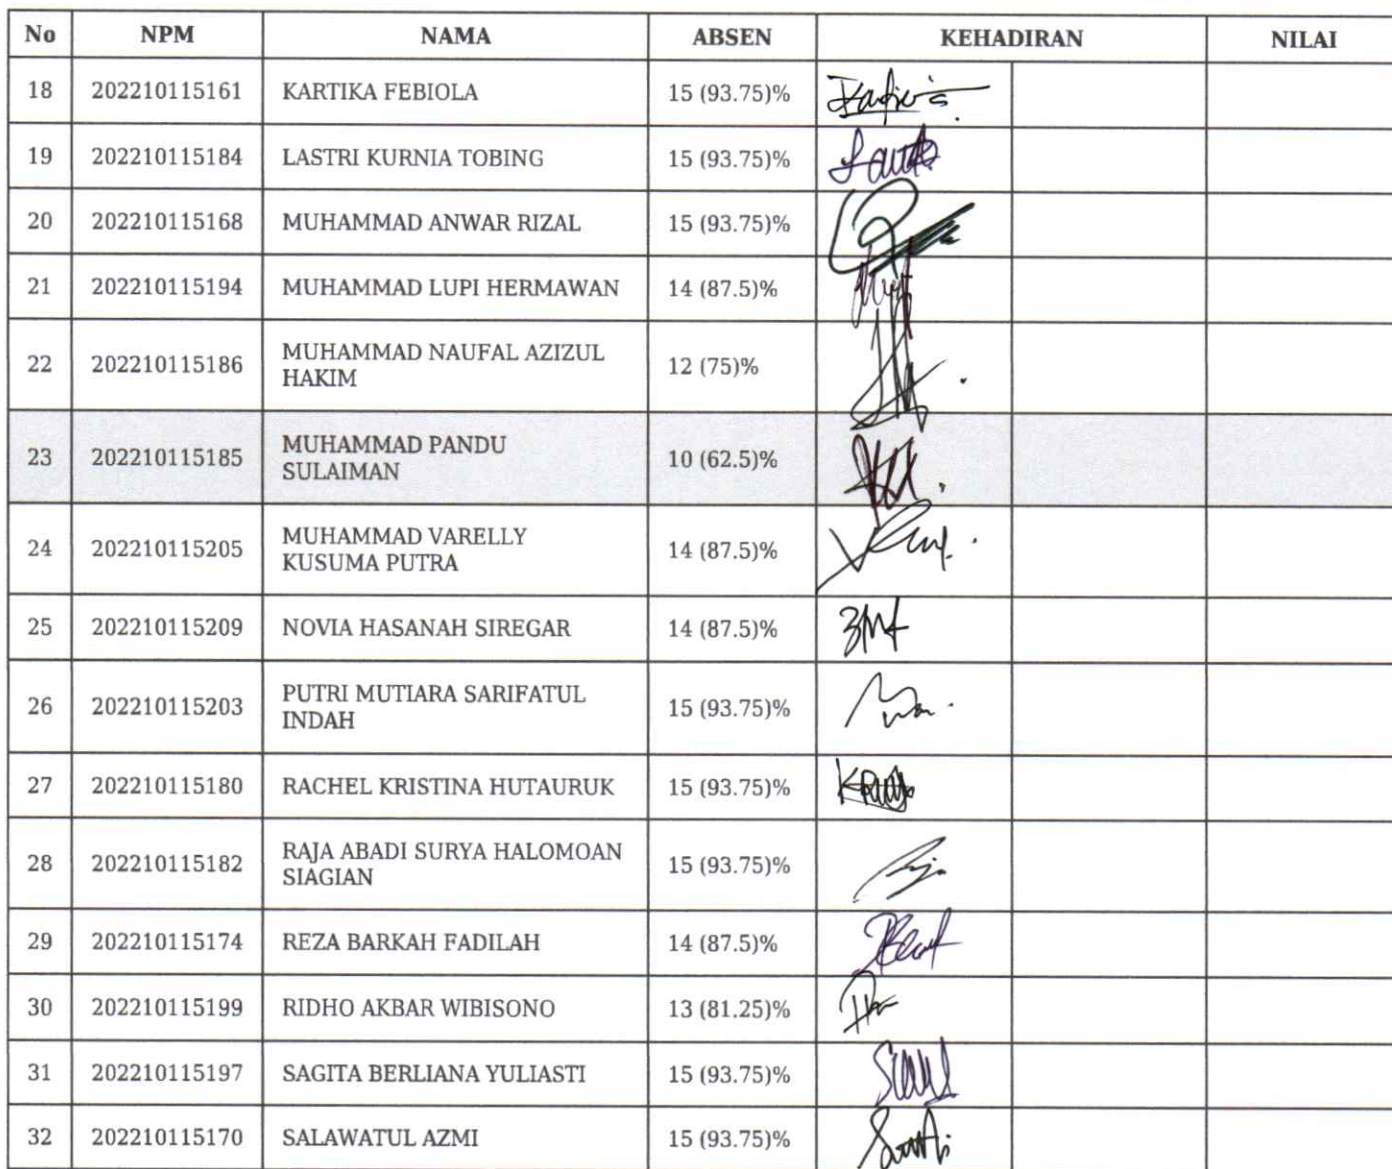 No NPM NAMA ABSEN KEHADIRAN NILAI
18 202210115161 KARTIKA FEBIOLA 15 (93.75)%
19 202210115184 LASTRI KURNIA TOBING 15 (93.75)%
20 202210115168 MUHAMMAD ANWAR RIZAL 15 (93.75)%
21 202210115194 MUHAMMAD LUPI HERMAWAN 14 (87.5)%
22 202210115186 MUHAMMAD NAUFAL AZIZUL 12 (75)%
HAKIM
23 202210115185 MUHAMMAD PANDU 10 (62.5)%
SULAIMAN
24 202210115205 MUHAMMAD VARELLY 14 (87.5)%
KUSUMA PUTRA
25 202210115209 NOVIA HASANAH SIREGAR 14 (87.5)%
26 202210115203 PUTRI MUTIARA SARIFATUL 15 (93.75)%
INDAH
27 202210115180 RACHEL KRISTINA HUTAURUK 15 (93.75)%
28 202210115182 RAJA ABADI SURYA HALOMOAN 15 (93.75)%
SIAGIAN
29 202210115174 REZA BARKAH FADILAH 14 (87.5)%
30 202210115199 RIDHO AKBAR WIBISONO 13 (81.25)%
31 202210115197 SAGITA BERLIANA YULIASTI 15 (93.75)%
32 202210115170 SALAWATUL AZMI 15 (93.75)%